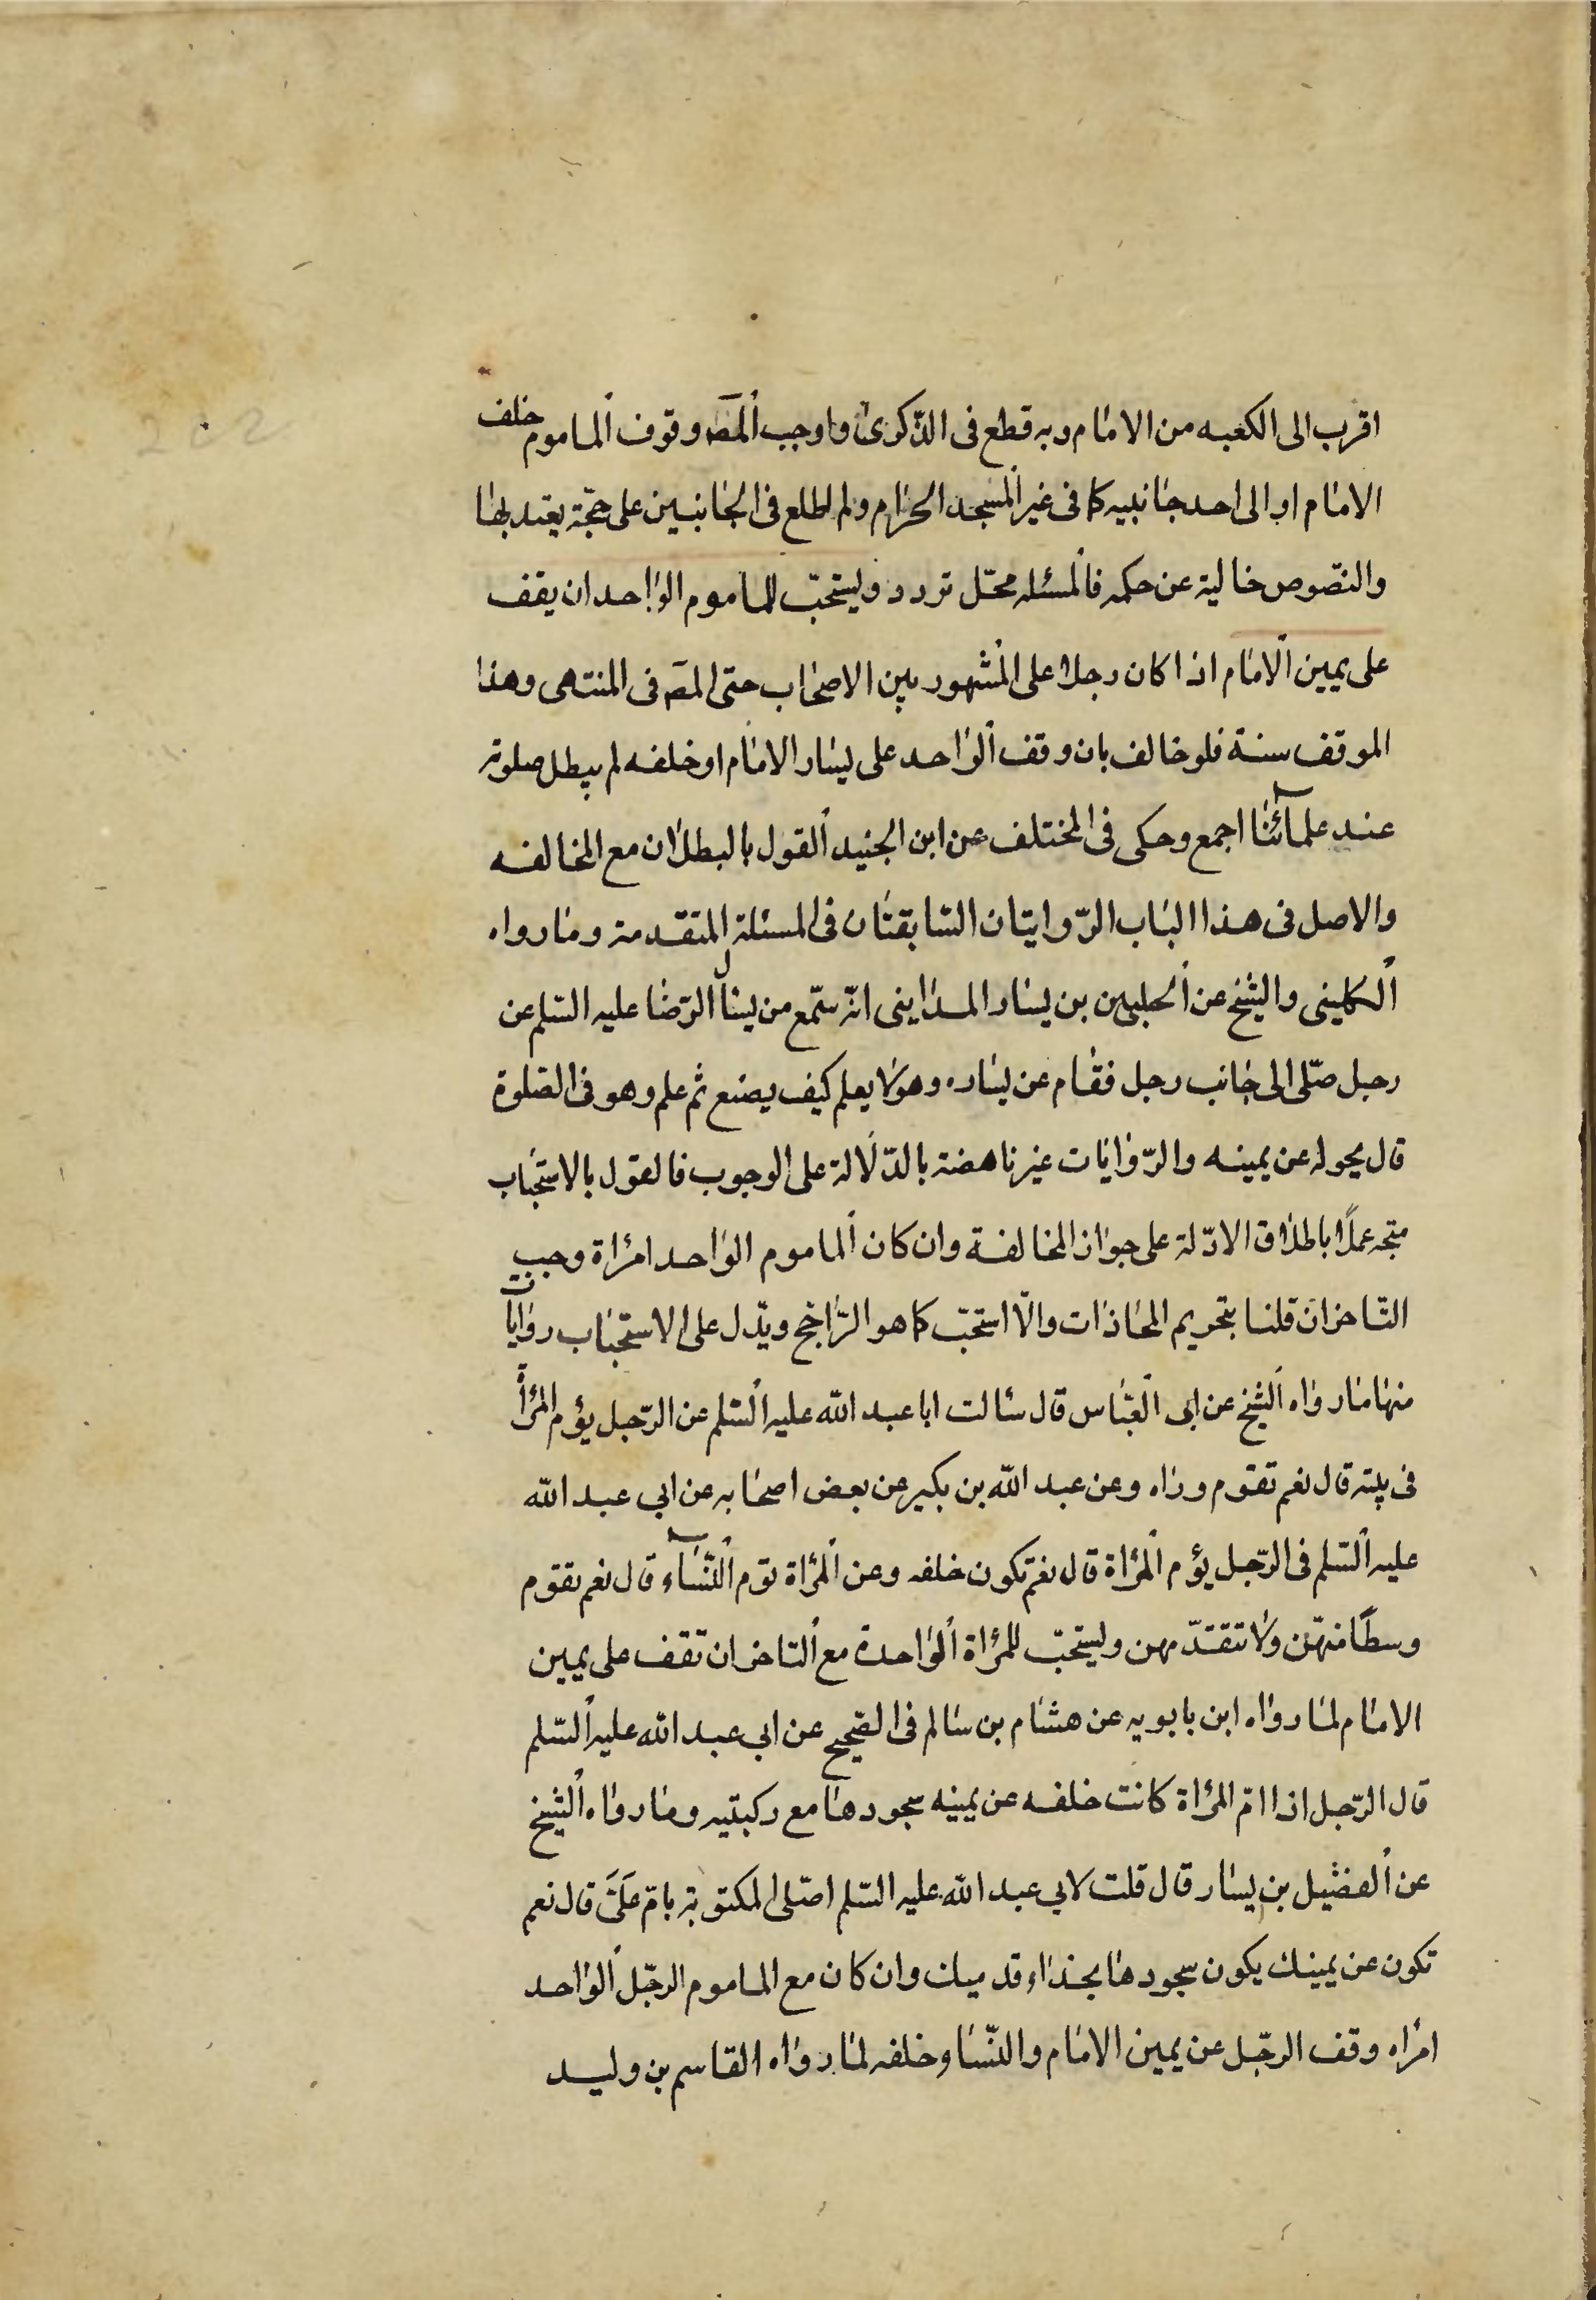 اقرب الى الكعبه من الامام وبه قطع فى الذكرى واوجب المصه وقوف الماموم خلف
الامام او الى احد جانبيه كما فى غير المسجد الحرام ولم اطلع فى الجانبين على حجّة يعتد بها
والنصّوص خالية عن حكمه فالمسئله محتل تردد وليستحبّ للماموم الواحد ان يقف
على يمين الامام اذا كان رجلا على المشهور بين الاصحاب حتى المصه فى المنتهى وهذا
الموقف سنة فلو خالف بان وقف الواحد على يسار الامام او خلفه لم يبطل صلوته
عند علمائنا اجمع وحكى فى المختلف عن ابن الجنيد القول بالبطلان مع المخالفه
والاصل فى هذا الباب الرّوايتان السّابقتان فى المسئلة المتقدمة وما رواه
الكلينى والشيخ عن الحليين بن يسار المداينى انّه سمّع من يسأل الرّضا عليه السّلم عن
رجل صّلى الى جانب رجل فقام عن يساره وهو لا يعلم كيف يصنع ثم علم وهو فى الصّلوة
قال يحوله عن يمينه والرّوايات غير ناهضة بالدّلالة على الوجوب فالقول بالاستحباب
متجه عملًا باطلاق الادّلة على جواز المخالفة وان كان الماموم الواحد امراة وجب
التّاخر ان قلنا بتحريم المحاذات والّا استحبّ كما هو الرّاجح ويدّل على الاستحباب روايات
منها ما رواه الشّيخ عن ابى العبّاس قال سالت ابا عبد الله عليه السّلم عن الرّجل يؤم المرأ
فى بيته قال نعم تقوم وراه وعن عبد الله بن بكير عن بعض اصحابه عن ابي عبد الله
عليه السّلم فى الرّجل يؤم المرأة قال نعم تكون خلفه وعن المرأة تؤم النّساء قال نعم تقوم
وسطًا منهّن ولا تتقدّ مهن وليستحبّ للمرأة الواحدة مع التاخر ان تقف على يمين
الامام لما رواه ابن بابويه عن هشام بن سالم فى الصّحيح عن ابي عبد الله عليه السّلم
قال الرّجل اذا امّ المرأة كانت خلفه عن يمينه سجودها مع ركبتيه وما رواه الشيخ
عن الفضيل بن يسار قال قلت لابي عبد الله عليه السّلم اصّلى المكتوبة بامّ علىّ قال نعم
تكون عن يمينك يكون سجودها بحذاء قدميك وان كان مع الماموم الرجّل الواحد
امراه وقف الرجّل عن يمين الامام والنّساو خلفه لما رواه القاسم بن وليد